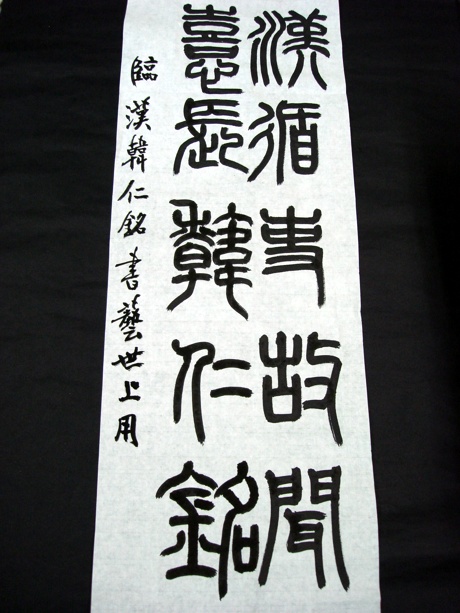 漢循吏故聞
憙長韓仁銘
臨漢韓仁銘書藝世上用